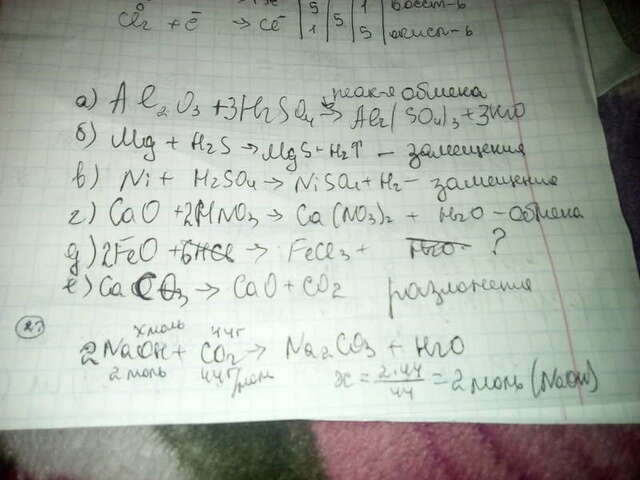 Cl2 + ē → Cl⁻ | 5 | 1 | восст-ь
1 | 5 | 5 | окисл-ь
реак-я обмена
а) Al2O3 + 3H2SO4 → Al2(SO4)3 + 3H2O
б) Mg + H2S → MgS - H2↑ - замещения
в) Ni + H2SO4 → NiSO4 + H2 - замещение
г) CaO + 2HNO3 → Ca(NO3)2 + H2O - обмена
д) 2FeO + 6HCl → FeCl3 + H2O ?
е) CaCO3 → CaO + CO2 разложения
2.)
x моль 44г
2NaOH + CO2 → Na2CO3 + H2O
2 моль 44г/моль x = 2·44/44 = 2 моль (NaOH)